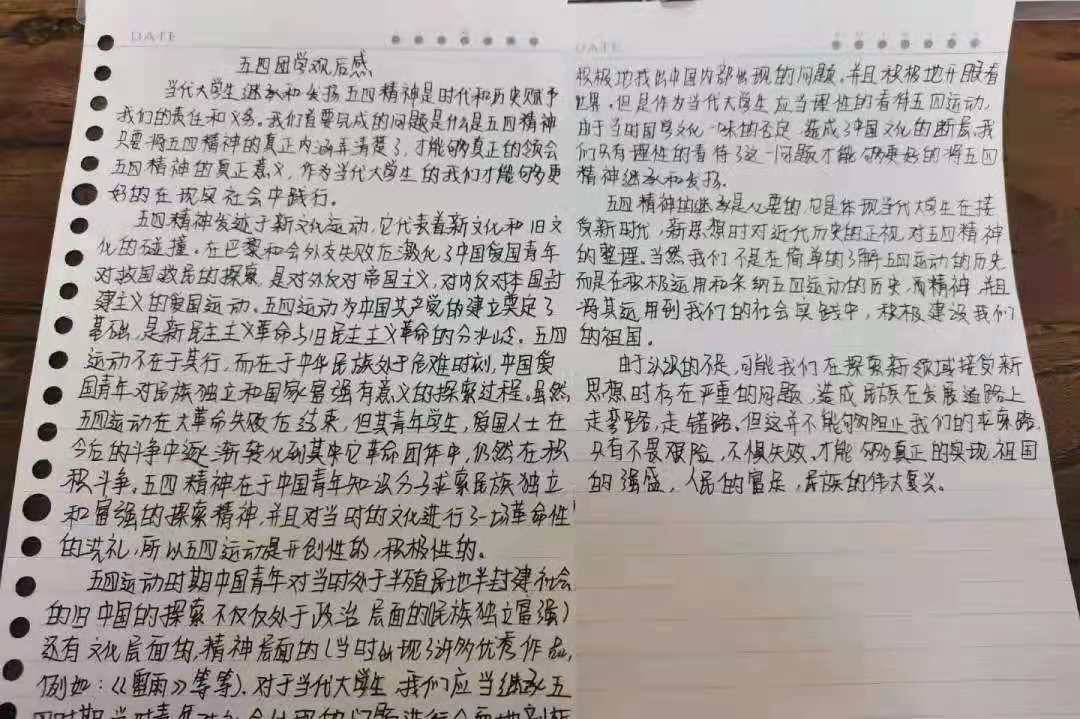 DATE
五四团学观后感
当代大学生继承和发扬五四精神是时代和历史赋予
我们的责任和义务。我们首要完成的问题是什么是五四精神
只要将五四精神的真正内涵弄清楚了,才能够真正的领会
五四精神的真正意义,作为当代大学生的我们才能够更
好的在现实社会中践行。
五四精神发迹于新文化运动,它代表着新文化和旧文
化的碰撞。在巴黎和会外交失败后激化了中国爱国青年
对救国救民的探索,是对外反对帝国主义,对内反对本国封
建主义的爱国运动。五四运动为中国共产党的建立奠定了
基础,是新民主主义革命与旧民主主义革命的分水岭。五四
运动不在于其行,而在于中华民族处于危难时刻,中国爱
国青年对民族独立和国家富强有意义的探索过程。虽然
五四运动在大革命失败后结束,但其青年学生,爱国人士在
今后的斗争中逐渐转化到其它革命团体中,仍然在积
积斗争。五四精神在于中国青年知识分子求索民族独立
和富强的探索精神,并且对当时的文化进行了一场革命性
的洗礼,所以五四运动是开创性的,积极性的。
五四运动时期中国青年对当时处于半殖民地半封建社会
的旧中国的探索不仅仅处于政治层面的(民族独立富强)
还有文化层面的,精神层面的(当时出现了许多优秀作品,
例如:《雷雨》等等)。对于当代大学生,我们应当继承五
DATE
积极地找出中国内部出现的问题,并且积极地开眼看
世界。但是作为当代大学生应当理性的看待五四运动,
由于当时国学文化一味的否定,造成了中国文化的断层,我
们只有理性的看待了这一问题才能够更好的将五四
精神继承和发扬。
五四精神的继承是必要的,它是体现当代大学生在接
受新时代,新思想时对近代历史的正视,对五四精神
的整理。当然我们不是在简单的了解五四运动的历史
而是在积极运用和采纳五四运动的历史,精神,并且
将其运用到我们的社会实践中,积极建设我们
的祖国。
由于认识的不足,可能我们在探索新领域接受新
思想时存在严重的问题,造成民族在发展道路上
走弯路,走错路。但这并不能够阻止我们的求索路,
只有不畏艰险,不惧失败,才能够真正的实现祖国
的强盛,人民的富足,民族的伟大复兴。